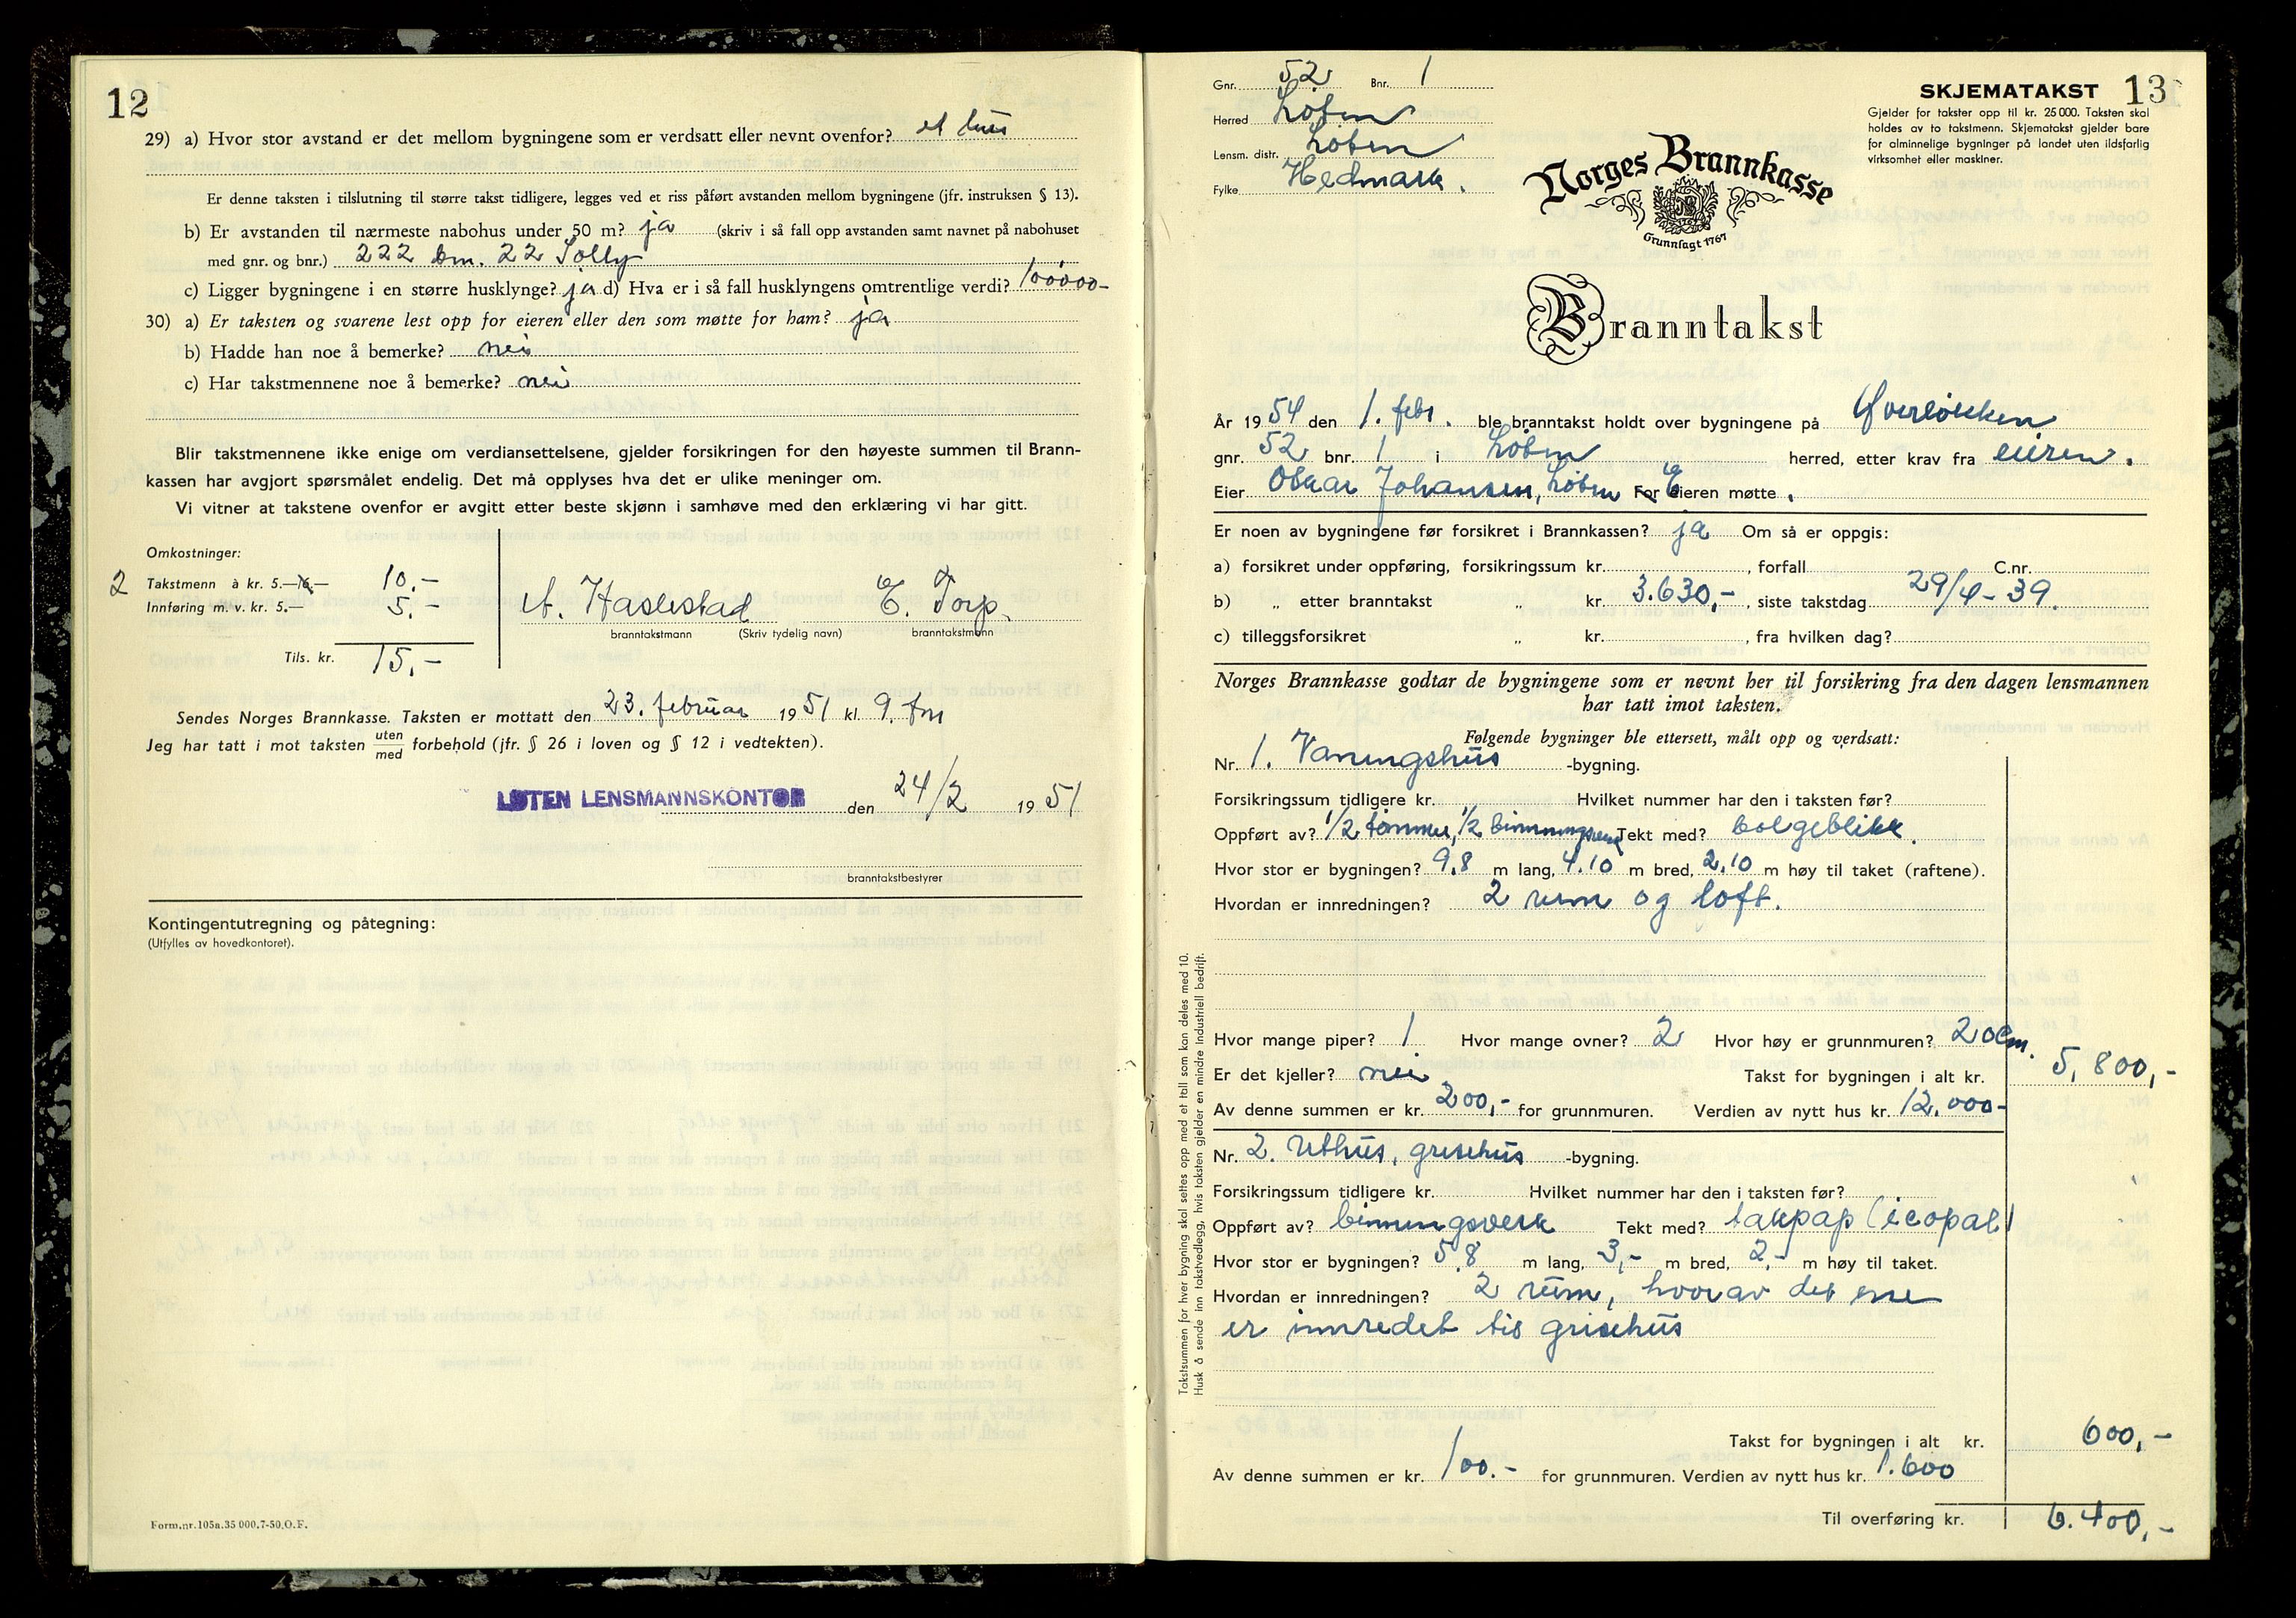 12
29) a) Hvor stor avstand er det mellom bygningene som er verdsatt eller nevnt ovenfor? et hus
Er denne taksten i tilslutning til større takst tidligere, legges ved et riss påført avstanden mellom bygningene (jfr. instruksen § 13).
b) Er avstanden til nærmeste nabohus under 50 m? ja (skriv i så fall opp avstanden samt navnet på nabohuset
med gnr. og bnr.) 222 bnr. 22 Solly
c) Ligger bygningene i en større husklynge? ja d) Hva er i så fall husklyngens omtrentlige verdi? 100000-
30) a) Er taksten og svarene lest opp for eieren eller den som møtte for ham? ja
b) Hadde han noe å bemerke? nei
c) Har takstmennene noe å bemerke? nei
Blir takstmennene ikke enige om verdiansettelsene, gjelder forsikringen for den høyeste summen til Brann-
kassen har avgjort spørsmålet endelig. Det må opplyses hva det er ulike meninger om.
Vi vitner at takstene ovenfor er avgitt etter beste skjønn i samhøve med den erklæring vi har gitt.
Omkostninger:
2 Takstmenn à kr. 5.— 10.-
Innføring m. v. kr. 5.— 5.-
Tils. kr. 15.-
A. Haslestad E. Torp.
branntakstmann (Skriv tydelig navn) branntakstmann
Sendes Norges Brannkasse. Taksten er mottatt den 23. februar 1951 kl. 9. fm
Jeg har tatt i mot taksten uten/med forbehold (jfr. § 26 i loven og § 12 i vedtekten).
LØTEN LENSMANNSKONTOR den 24/2 1951
branntakstbestyrer
Kontingentutregning og påtegning:
(Utfylles av hovedkontoret).
Form.nr.105a.35 000.7-50.O.F.
13
Gnr. 52 Bnr. 1
Herred Løten
Lensm. distr. Løten
Fylke Hedmark.
SKJEMATAKST
Gjelder for takster opp til kr. 25 000. Taksten skal
holdes av to takstmenn. Skjematakst gjelder bare
for alminnelige bygninger på landet uten ildsfarlig
virksomhet eller maskiner.
Norges Brannkasse
Grunnlagt 1767
Branntakst
År 1954 den 1. febr. ble branntakst holdt over bygningene på Øverløkken
gnr. 52 bnr. 1 i Løten herred, etter krav fra eieren.
Eier Oskar Johansen, Løten For Eieren møtte.
Er noen av bygningene før forsikret i Brannkassen? ja Om så er oppgis:
a) forsikret under oppføring, forsikringssum kr. , forfall C.nr.
b) „ etter branntakst „ kr. 3.630,- , siste takstdag 29/4-39.
c) tilleggsforsikret „ kr. , fra hvilken dag?
Norges Brannkasse godtar de bygningene som er nevnt her til forsikring fra den dagen lensmannen
har tatt imot taksten.
Følgende bygninger ble ettersett, målt opp og verdsatt:
Nr. 1. Vaningshus -bygning.
Forsikringssum tidligere kr. Hvilket nummer har den i taksten før?
Oppført av? 1/2 tømmer, 1/2 binningsverk Tekt med? bølgeblikk.
Hvor stor er bygningen? 9,8 m lang, 4.10 m bred, 2.10 m høy til taket (raftene).
Hvordan er innredningen? 2 rum og loft.
Hvor mange piper? 1 Hvor mange ovner? 2 Hvor høy er grunnmuren? 20cm.
Er det kjeller? nei Takst for bygningen i alt kr. 5,800,-
Av denne summen er kr. 200,- for grunnmuren. Verdien av nytt hus kr. 12.000-
Nr. 2. Uthus, grisehus -bygning.
Forsikringssum tidligere kr. Hvilket nummer har den i taksten før?
Oppført av? binningsverk Tekt med? takpap (icopal)
Hvor stor er bygningen? 5,8 m lang, 3,- m bred, 2,- m høy til taket.
Hvordan er innredningen? 2 rum, hvorav det ene
er innredet til grisehus
Takst for bygningen i alt kr. 600,-
Av denne summen er kr. 100.- for grunnmuren. Verdien av nytt hus kr. 1.600
Til overføring kr. 6.400,-
Takstsummen for hver bygning skal settes opp med et tall som kan deles med 10.
Husk å sende inn takstvedlegg, hvis taksten gjelder en mindre industriell bedrift.